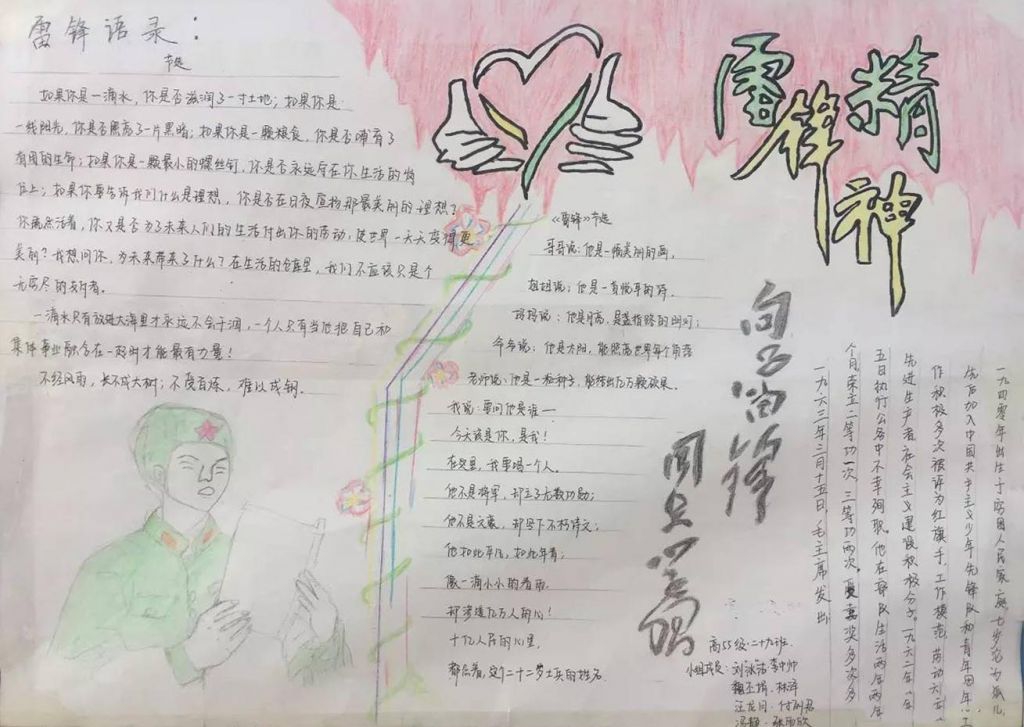 雷锋语录：
节选
如果你是一滴水，你是否滋润了一寸土地；如果你是
一线阳光，你是否照亮了一片黑暗；如果你是一颗粮食，你是否哺育了
有用的生命；如果你是一颗最小的螺丝钉，你是否永远守在你生活的岗
位上；如果你要告诉我们什么是理想，你是否在日夜宣扬那最美丽的理想？
你既然活着，你又是否为了未来人们的生活付出你的劳动，使世界一天天变得更
美丽？我想问你，为未来带来了什么？在生活的仓库里，我们不应该只是个
无穷尽的支付者。
一滴水只有放进大海里才永远不会干涸，一个人只有当他把自己和
集体事业融合在一起时才能最有力量！
不经风雨，长不成大树；不受百炼，难以成钢。
雷锋精神
《雷锋》节选
哥哥说：他是一幅美丽的画，
姐姐说：他是一首悦耳的诗。
妈妈说：他是月亮，是盏指路的明灯；
爷爷说：他是太阳，能照亮世界每个角落
老师说：他是一粒种子，能结出亿万颗硕果。
我说：要问他是谁——
今天该是你，是我！
在这里，我要唱一个人。
他不是将军，却立了无数功勋；
他不是文豪，却写下不朽诗文；
他如此平凡，如此年青；
像一滴小小的春雨，
却渗透亿万人的心！
十亿人民的心里，
都念着，这个二十二岁士兵的姓名
向雷锋
同志学习
一九四零年出生于贫困人民家庭，七岁沦为孤儿
先后加入中国共产主义少年先锋队和青年团年
作积极多次被评为红旗手，工作模范，劳动
先进生产者，社会主义建设积极分子。一九六二年八月
五日执行公务中不幸殉职。他在部队生活两年两
个月荣立二等功一次，三等功两次。嘉奖多次
一九六三年三月十五日，毛主席发出
高55级·二十九班
小组成员：刘泳洁